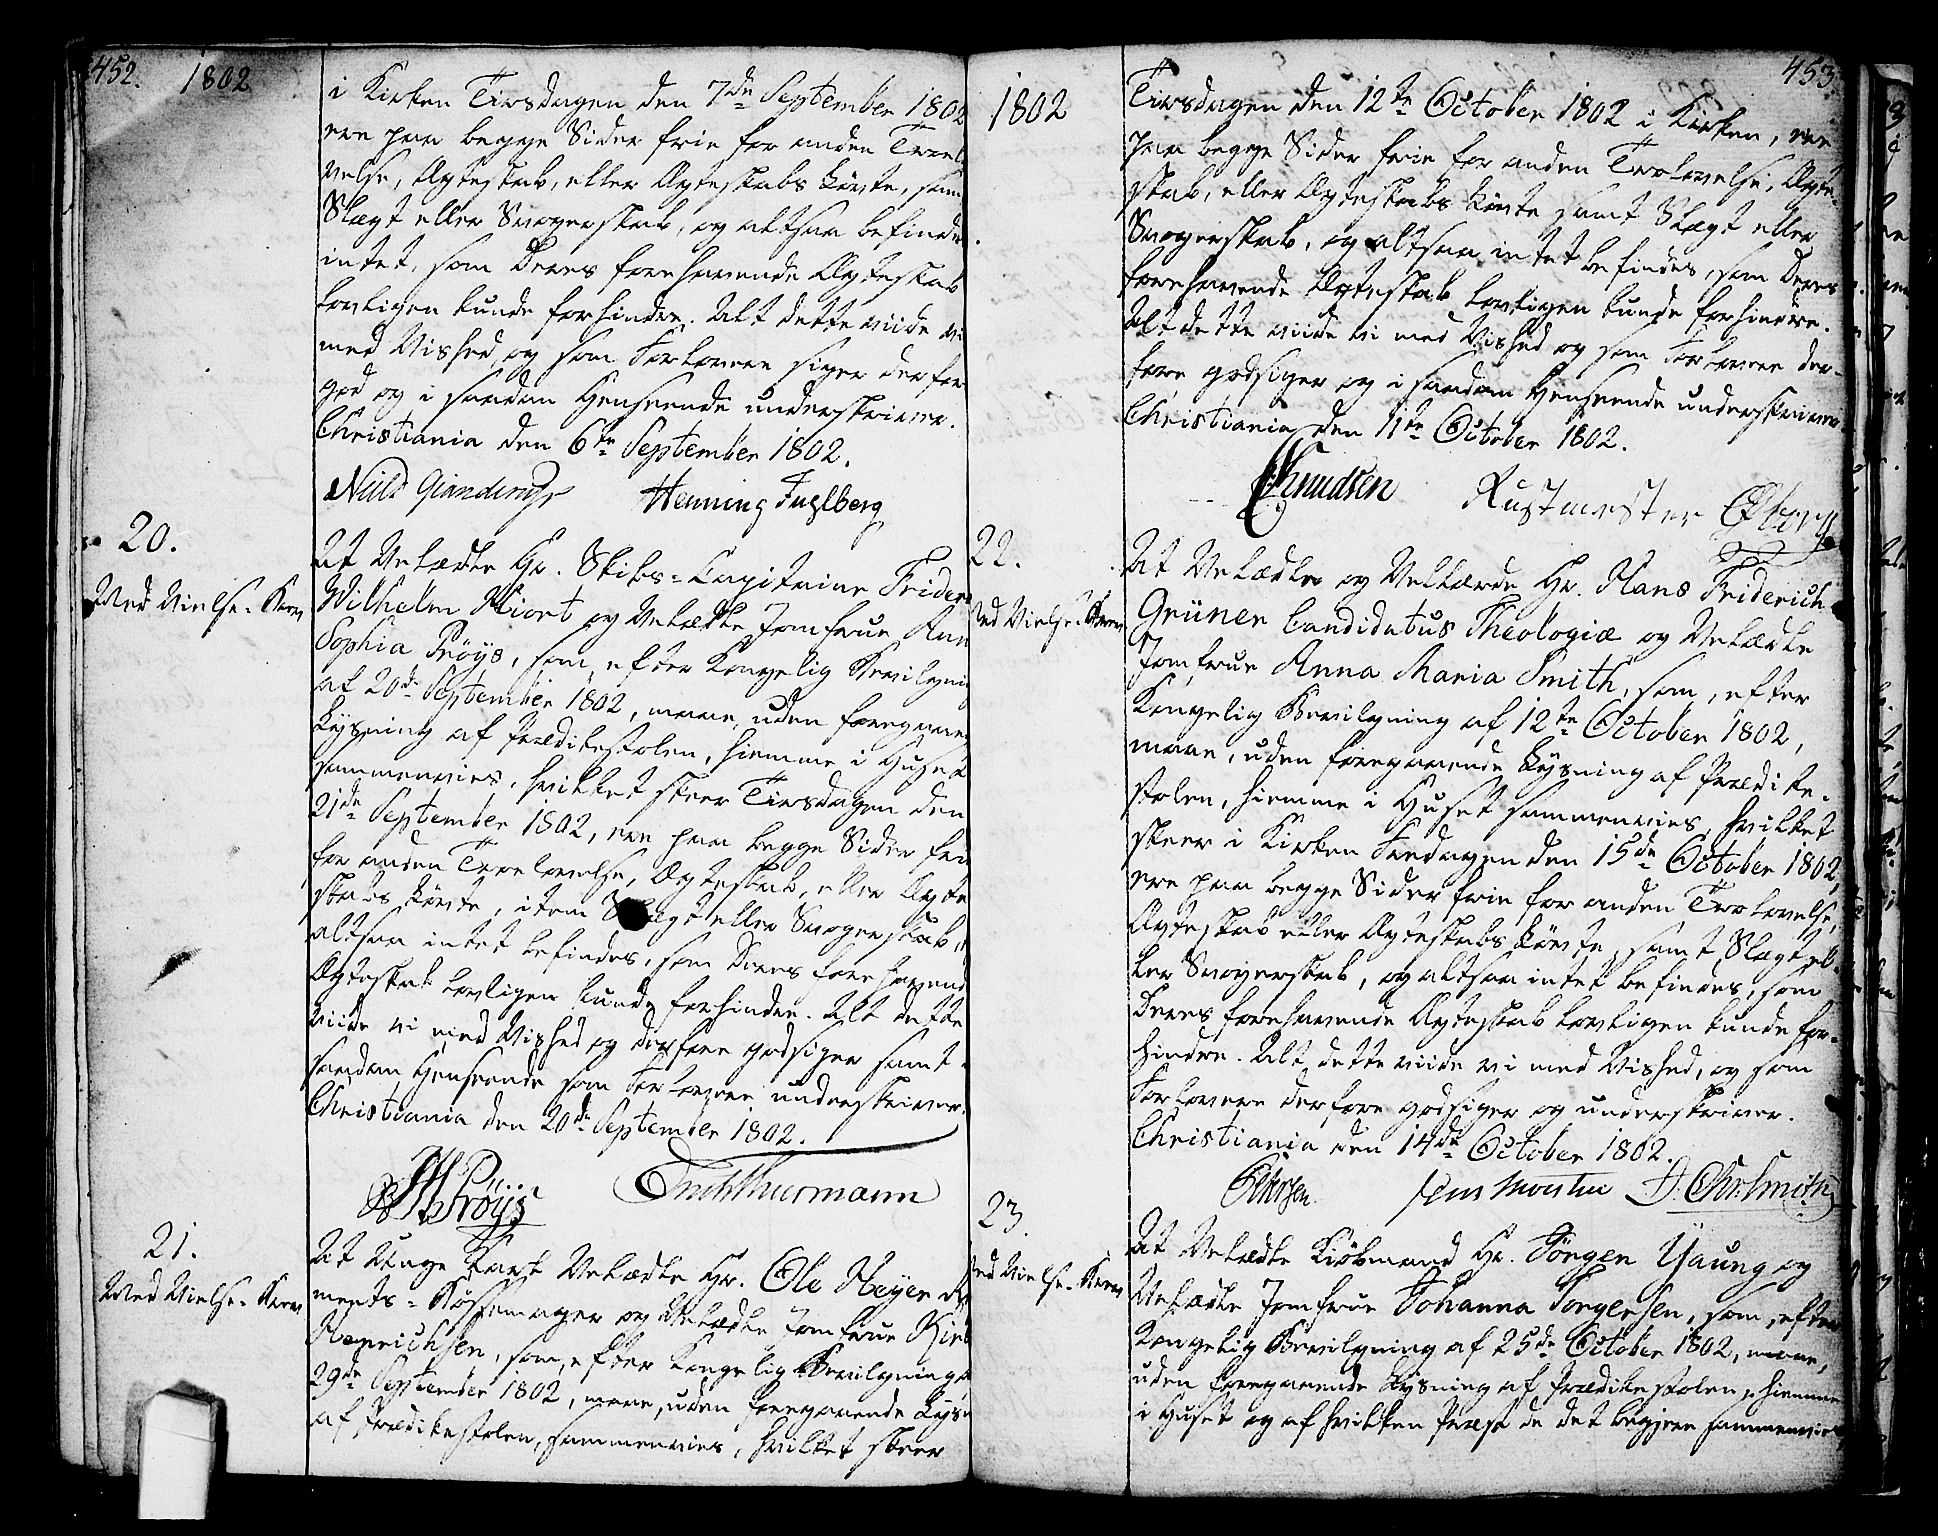 452.
1802
i Kirken Tirsdagen den 7de September 1802
ere paa begge Sider frie for anden Troe
velse, Ægteskab, eller Ægteskabs Løvte, samt
Slægt eller Svogerskab, og altsaa befindes
intet, som Deres forehavende Ægteskab
lovligen kunde forhindre. Alt dette viide vi
med Vished, og som Forlovere siger derfor
god og i saadan Henseende underskriver.
Christiania den 6te September 1802.
Henning Fuglberg
20.
Med Vielse-Brev
At Velædle Hr. Skibs-Capitaine Frider
Wilhelm Hiort og Velædle Jomfrue Ann
Sophia Prøys, som, efter Kongelig Bevilgning
af 20de September 1802, maae, uden foregaaen
Lysning af Prædikestolen, hiemme i Huset
sammenvies, hvilket skeer Tirsdagen den
21de September 1802, ere paa begge Sider frie
for anden Troelovelse, Ægteskab, eller Ægte
skabs Løvte, item Slægt eller Svogerskab,
altsaa intet befindes, som Deres forehavend
Ægteskab lovligen kunde forhindre. Alt dette
viide vi med Vished og derfore godsiger samt
saadan Henseende som Forlovere underskriver.
Christiania den 20de September 1802.
Prøys Thurmann
21.
Med Vielse-Brev
At Unge Karl Velædle Hr. Ole Heyer Regi
ments-Bøssemager og Velædle Jomfrue Kirs
Henrichsen, som, efter Kongelig Bevilgning
29de September 1802, maae, uden foregaaende Lysn
af Prædikestolen, sammenvies, hvilket skeer
453
1802
Tirsdagen den 12te October 1802 i Kirken, ere
paa begge Sider frie for anden Trolovelse, Ægte-
skab, eller Ægteskabs Løvte samt Slægt eller
Svogerskab, og altsaa intet befindes, som Deres
forehavende Ægteskab lovligen kunde forhindre.
Alt dette viide vi med Vished og som Forlovere der-
fore godsiger og i saadan Henseende underskriver
Christiania den 11te October 1802.
Knudsen Rustmester
22.
Med Vielse-Brev
At Velædle og Vellærde Hr. Hans Friderich
Grüner Candidatus Theologiæ og Velædle
Jomfrue Anna Maria Smith, som, efter
Kongelig Bevilgning af 12te October 1802,
maae, uden foregaaende Lysning af Prædike-
stolen, hiemme i Huset sammenvies, hvilket
skeer i Kirken Fredagen den 15de October 1802,
ere paa begge Sider frie for anden Trolovelse,
Ægteskab eller Ægteskabs Løvte, samt Slægt el-
ler Svogerskab, og altsaa intet befindes, som
Deres forehavende Ægteskab lovligen kunde for-
hindre. Alt dette viide vi med Vished, og som
Forlovere derfore godsiger og underskriver.
Christiania den 14de October 1802.
Jens Moestue Chr. Smith
23.
Med Vielse-Brev
At Velædle Kiøbmand Hr. Jörgen Young og
Velædle Jomfrue Johanna Jörgensen, som, efter
Kongelig Bevilgning af 25de October 1802, maae,
uden foregaaende Lysning af Prædikestolen, hiemme
i Huset og af hvilken Præst de det begjere sammenvies